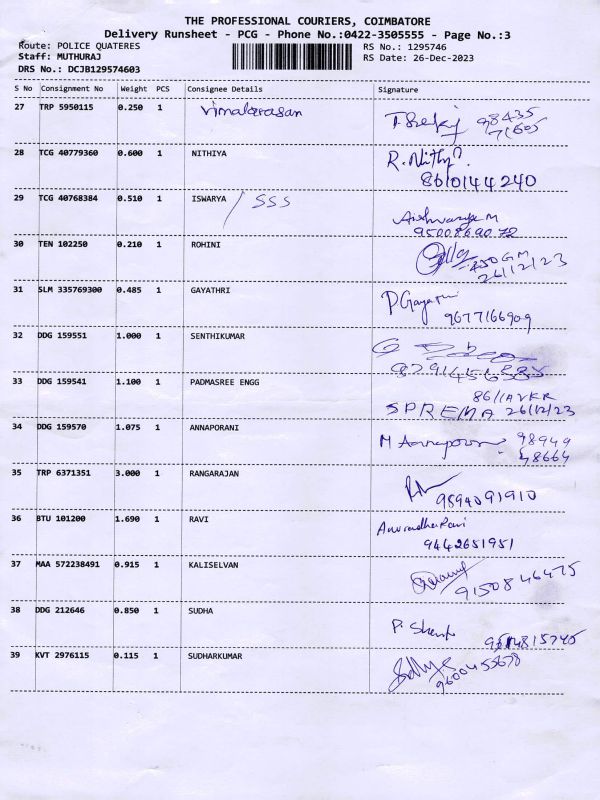 THE PROFESSIONAL COURIERS, COIMBATORE
Delivery Runsheet - PCG - Phone No.:0422-3505555 - Page No.:3
Route: POLICE QUATERES RS No.: 1295746
Staff: MUTHURAJ RS Date: 26-Dec-2023
DRS No.: DCJB129574603
S No Consignment No Weight PCS Consignee Details Signature
27 TRP 5950115 0.250 1 Vimalarasan 98435
71605
28 TCG 40779360 0.600 1 NITHIYA R. Nithya
8610144240
29 TCG 40768384 0.510 1 ISWARYA / SSS Aishwarya M
9500869072
30 TEN 102250 0.210 1 ROHINI 250 GM
26/12/23
31 SLM 335769300 0.485 1 GAYATHRI P Gayathri
9677166909
32 DDG 159551 1.000 1 SENTHIKUMAR
33 DDG 159541 1.100 1 PADMASREE ENGG 86/1 AVKR
S PREMA 26/12/23
34 DDG 159570 1.075 1 ANNAPORANI M Annapoorani 98949
48664
35 TRP 6371351 3.000 1 RANGARAJAN
9894091910
36 BTU 101200 1.690 1 RAVI Anuradha Ravi
9442651951
37 MAA 572238491 0.915 1 KALISELVAN
9150846475
38 DDG 212646 0.850 1 SUDHA P.
39 KVT 2976115 0.115 1 SUDHARKUMAR
9600455678